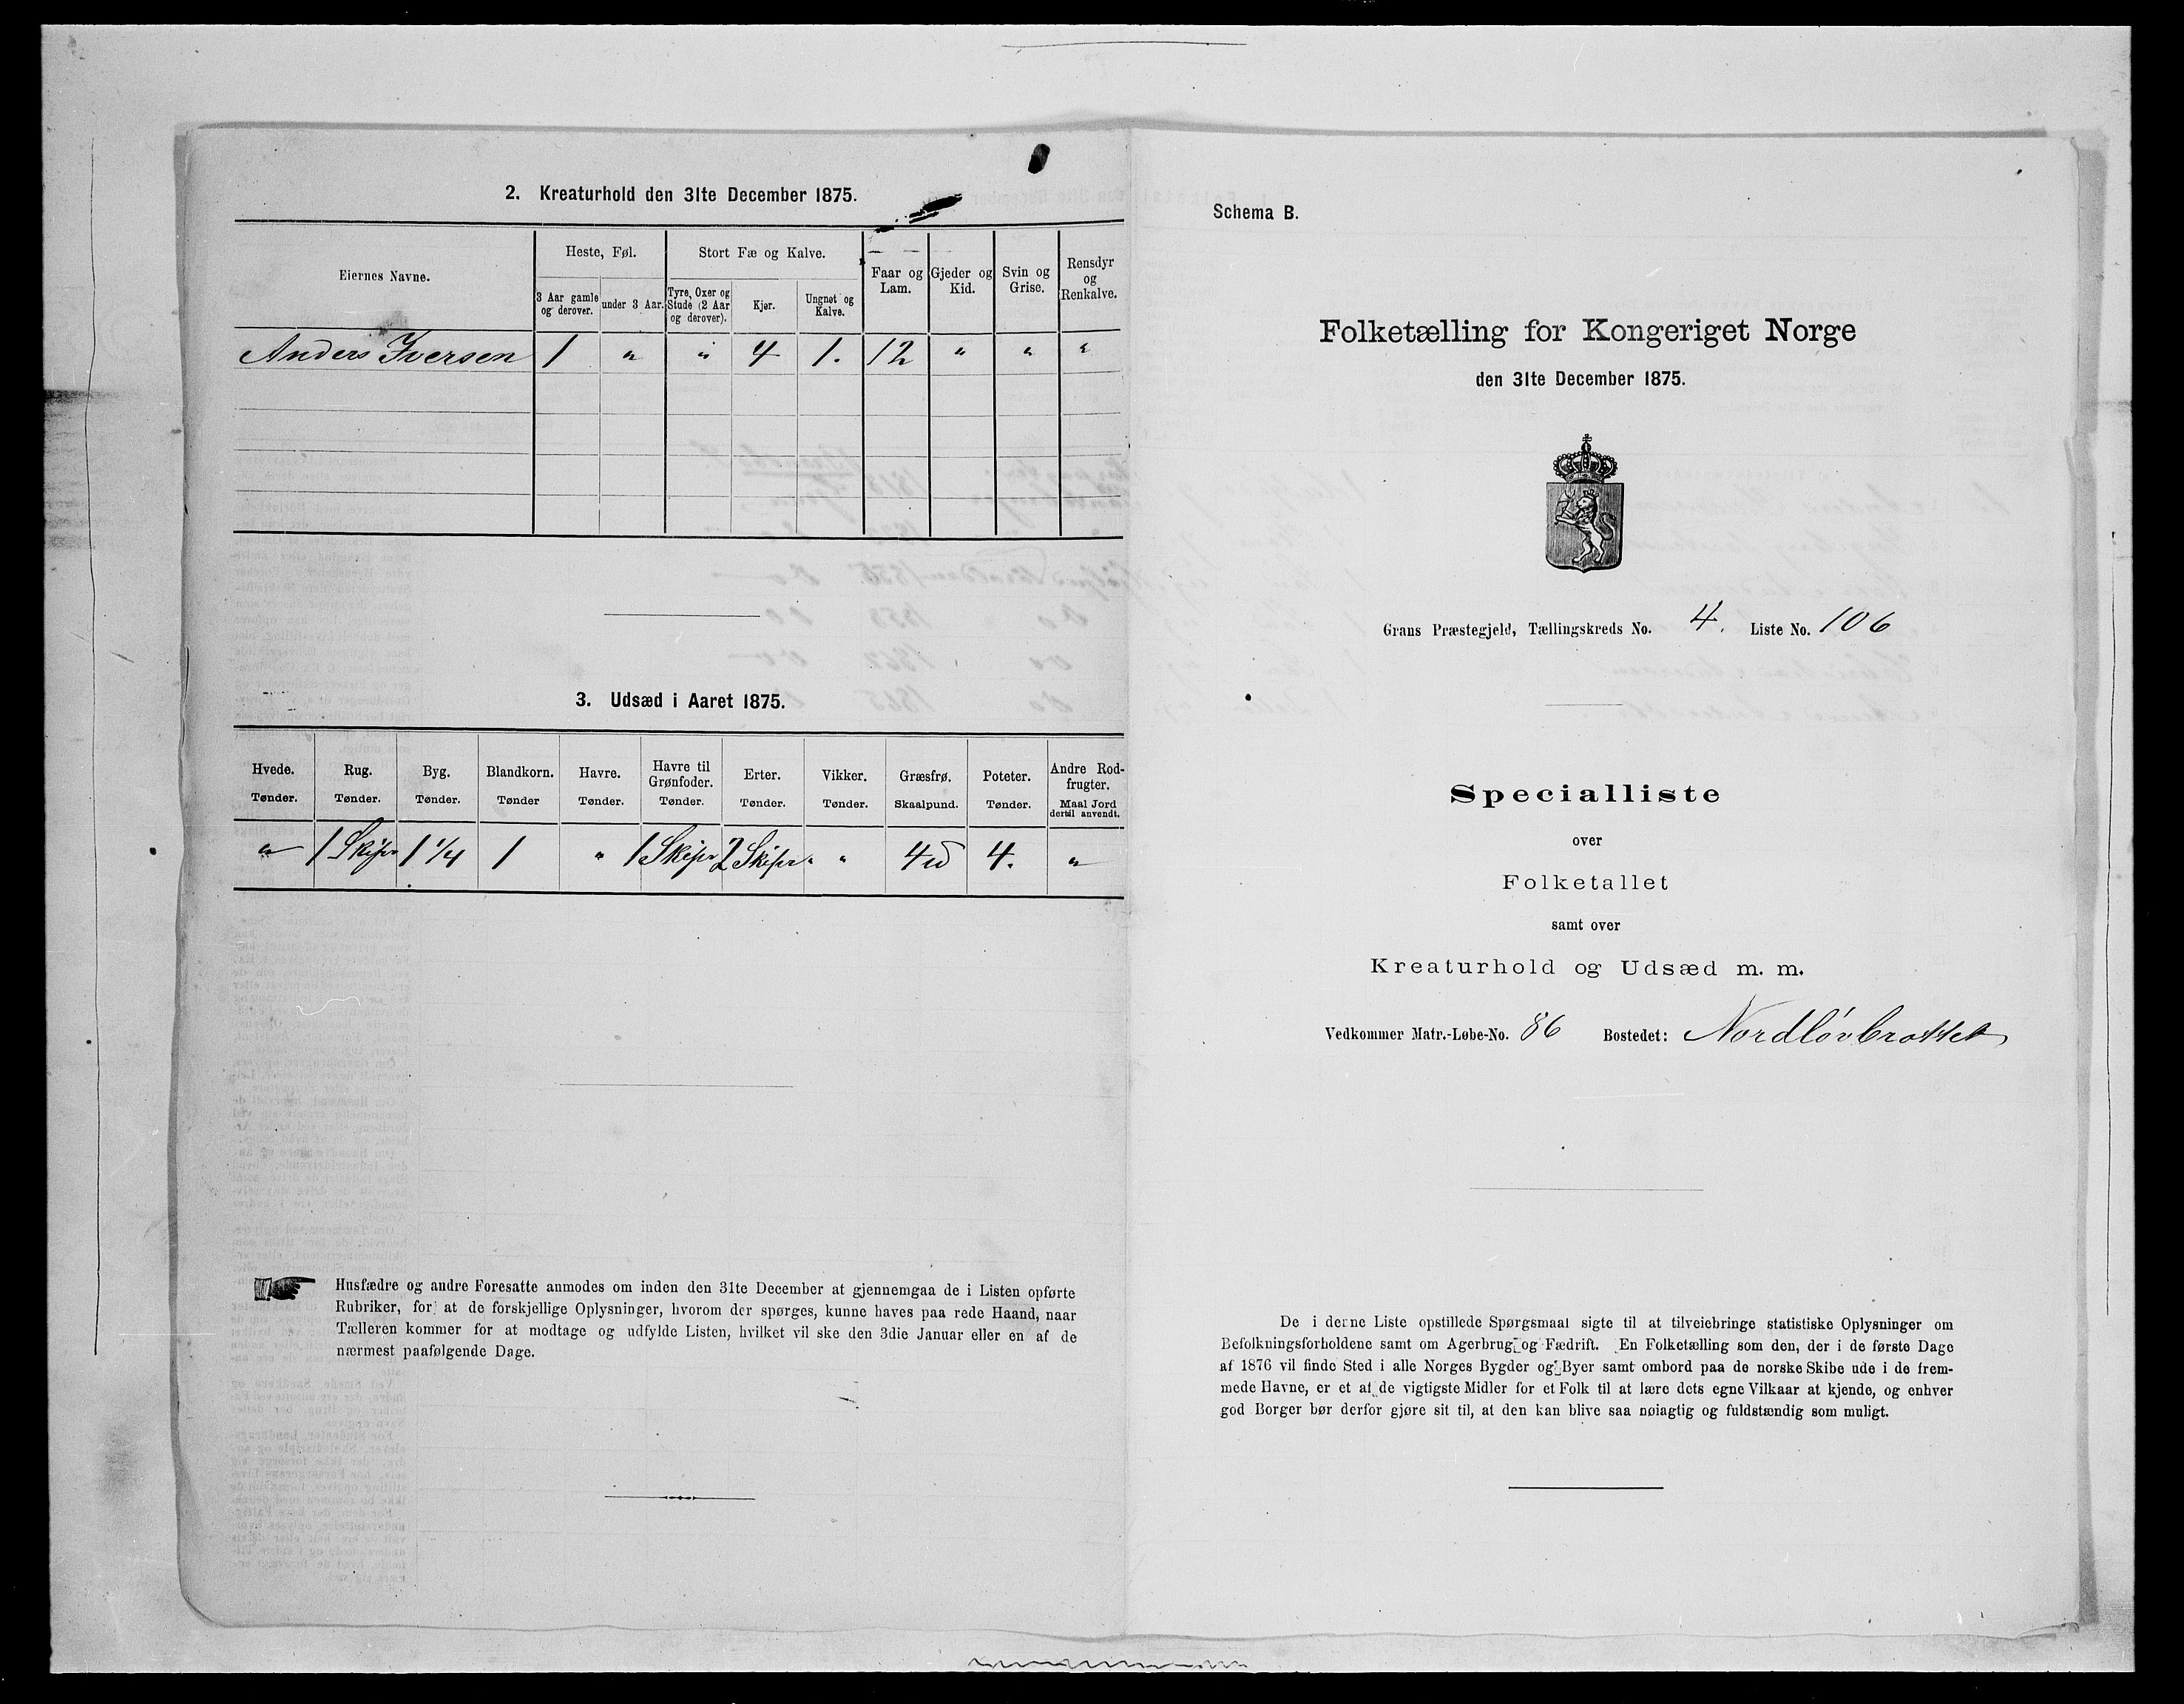 2. Kreaturhold den 31te December 1875.
Eiernes Navne.
Heste, Føl.
Stort Fæ og Kalve.
Faar og Lam.
Gjeder og Kid.
Svin og Grise.
Rensdyr og Renkalve.
3 Aar gamle og derover.
under 3 Aar.
Tyre, Oxer og Stude (2 Aar og derover).
Kjør.
Ungnøt og Kalve.
Anders Iversen 1 " " 4 1. 12 " " "
3. Udsæd i Aaret 1875.
Hvede. Rug. Byg. Blandkorn. Havre. Havre til Grønfoder. Erter. Vikker. Græsfrø. Poteter. Andre Rodfrugter.
Tønder. Tønder. Tønder. Tønder Tønder. Tønder. Tønder. Tønder. Skaalpund. Tønder. Maal Jord dertil anvendt.
" 1 Skjpr 1 1/4 1 " 1 Skjpr 2 Skjpr " 4 4. "
Husfædre og andre Foresatte anmodes om inden den 31te December at gjennemgaa de i Listen opførte
Rubriker, for at de forskjellige Oplysninger, hvorom der spørges, kunne haves paa rede Haand, naar
Tælleren kommer for at modtage og udfylde Listen, hvilket vil ske den 3die Januar eller en af de
nærmest paafølgende Dage.
Schema B.
Folketælling for Kongeriget Norge
den 31te December 1875.
Grans Præstegjeld, Tællingskreds No. 4. Liste No. 106
Specialliste
over
Folketallet
samt over
Kreaturhold og Udsæd m. m.
Vedkommer Matr.-Løbe-No. 86 Bostedet: Nordløvbrottet
De i derne Liste opstillede Spørgsmaal sigte til at tilveiebringe statistiske Oplysninger om
Befolkningsforholdene samt om Agerbrug og Fædrift. En Folketælling som den, der i de første Dage
af 1876 vil finde Sted i alle Norges Bygder og Byer samt ombord paa de norske Skibe ude i de frem-
mede Havne, er et af de vigtigste Midler for et Folk til at lære dets egne Vilkaar at kjende, og enhver
god Borger bør derfor gjøre sit til, at den kan blive saa nøiagtig og fuldstændig som muligt.